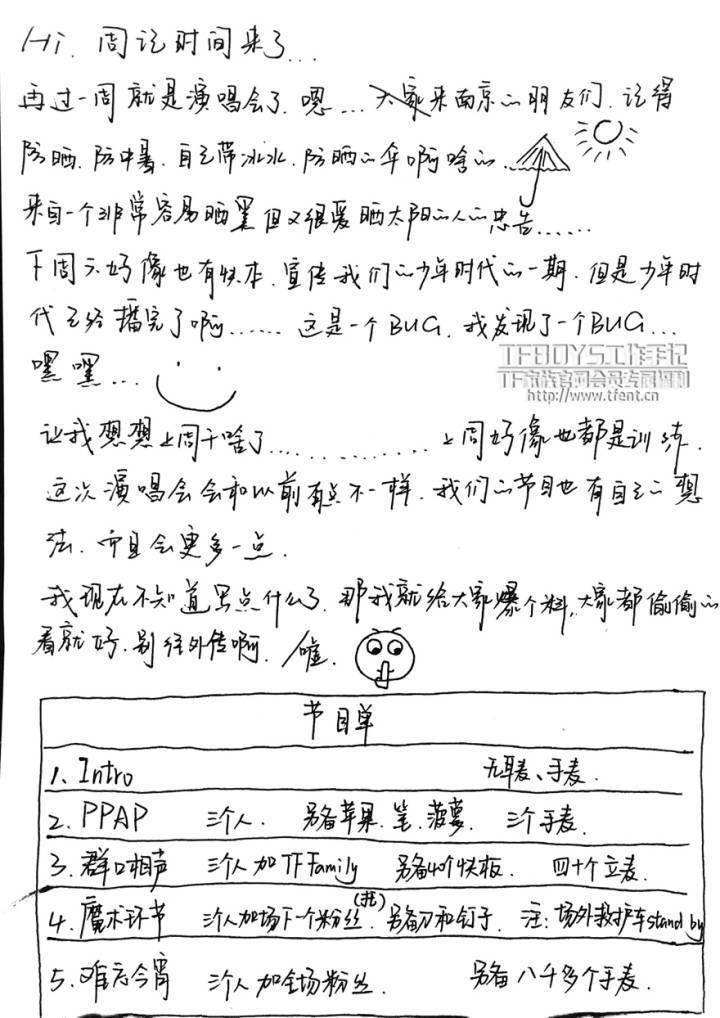 Hi. 周记时间来了...
再过一周就是演唱会了.嗯....大家来南京的朋友们.记得
防晒.防中暑.自己带冰水.防晒的伞啊啥的..
来自一个非常容易晒黑但又很爱晒太阳的人的忠告......
下周六好像也有快本.宣传我们的少年时代的一期.但是少年时
代已经播完了啊...... 这是一个BUG.我发现了一个BUG...
嘿嘿...
TFBOYS工作手记
TF家族官网会员专属福利
http://www.tfent.cn
让我想想上周干啥了............. 上周好像也都是训练.
这次演唱会会和以前有点不一样.我们的节目也有自己的想
法.而且会更多一点.
我现在不知道写点什么了.那我就给大家爆个料,大家都偷偷的
看就好.别往外传啊.嘘.
节目单
1. Intro 无耳麦、手麦.
2. PPAP 三个人. 另备苹果.笔.菠萝. 三个手麦.
3. 群口相声 三个人加TF Family 另备40个快板. 四十个立麦.
4. 魔术环节 三个人加场下一个粉丝(托).另备刀和钉子. 注:场外救护车stand by
5. 难忘今宵 三个人加全场粉丝. 另备八千多个手麦.